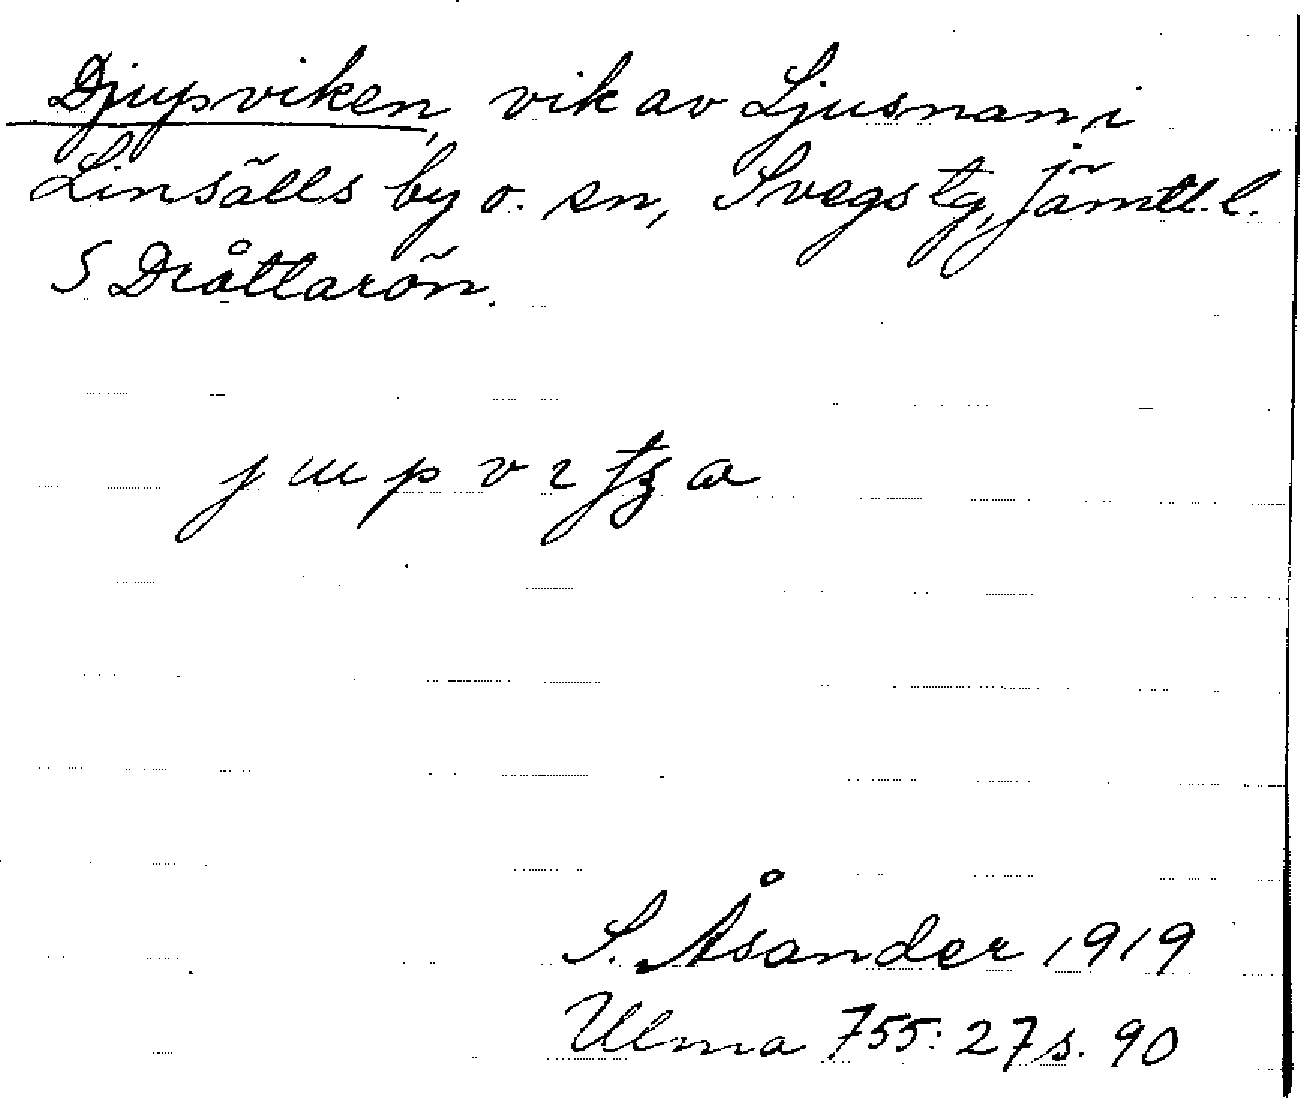 Djupviken, vik av Ljusnan, i
Linsälls by o. sn, Svegs tg, Jämtl. l.
S Dråttarön.
S. Åsander 1919
Ulma 755: 27 s. 90